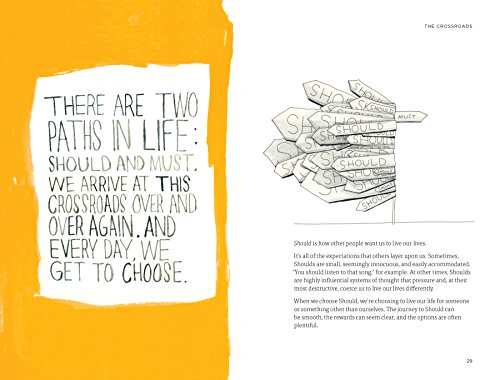 THERE ARE TWO
PATHS IN LIFE:
SHOULD AND MUST.
WE ARRIVE AT THIS
CROSSROADS OVER AND
OVER AGAIN. AND
EVERY DAY, WE
GET TO CHOOSE.
THE CROSSROADS
SHOULD
SHOULD
SHOULD
MUST
SHOULD
SHOULD
SHOULD
SHOULD
SHOULD
Should is how other people want us to live our lives.
It's all of the expectations that others layer upon us. Sometimes,
Shoulds are small, seemingly innocuous, and easily accommodated.
"You should listen to that song," for example. At other times, Shoulds
are highly influential systems of thought that pressure and, at their
most destructive, coerce us to live our lives differently.
When we choose Should, we're choosing to live our life for someone
or something other than ourselves. The journey to Should can
be smooth, the rewards can seem clear, and the options are often
plentiful.
29